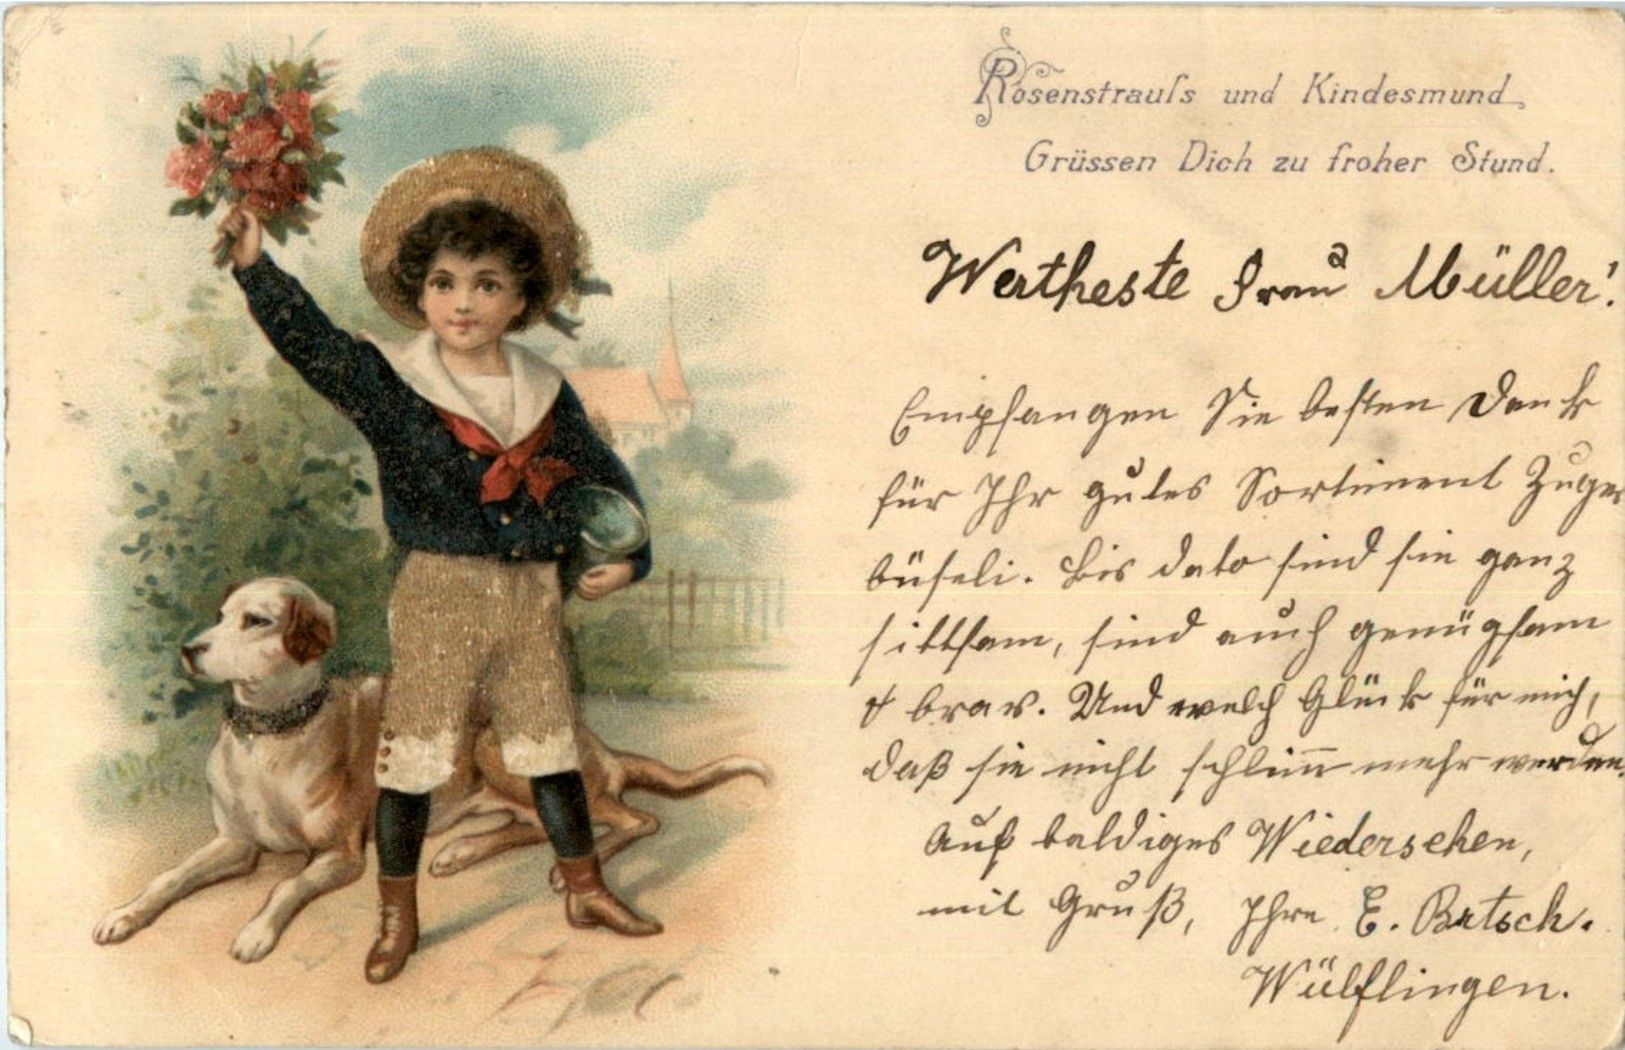 Rosenstrauſs und Kindesmund
Grüssen Dich zu froher Stund.
Wertheste Frau Müller!
Empfangen Sie besten Dank
für Ihr gutes Sortiment Zuger
büseli. Bis dato sind sie ganz
sittsam, sind auch genügsam
& brav. Und welch Glück für mich,
daß sie nicht schlim̅ mehr werden.
Auf baldiges Wiedersehen,
mit Gruß, Ihre E. Bertsch.
Wülflingen.